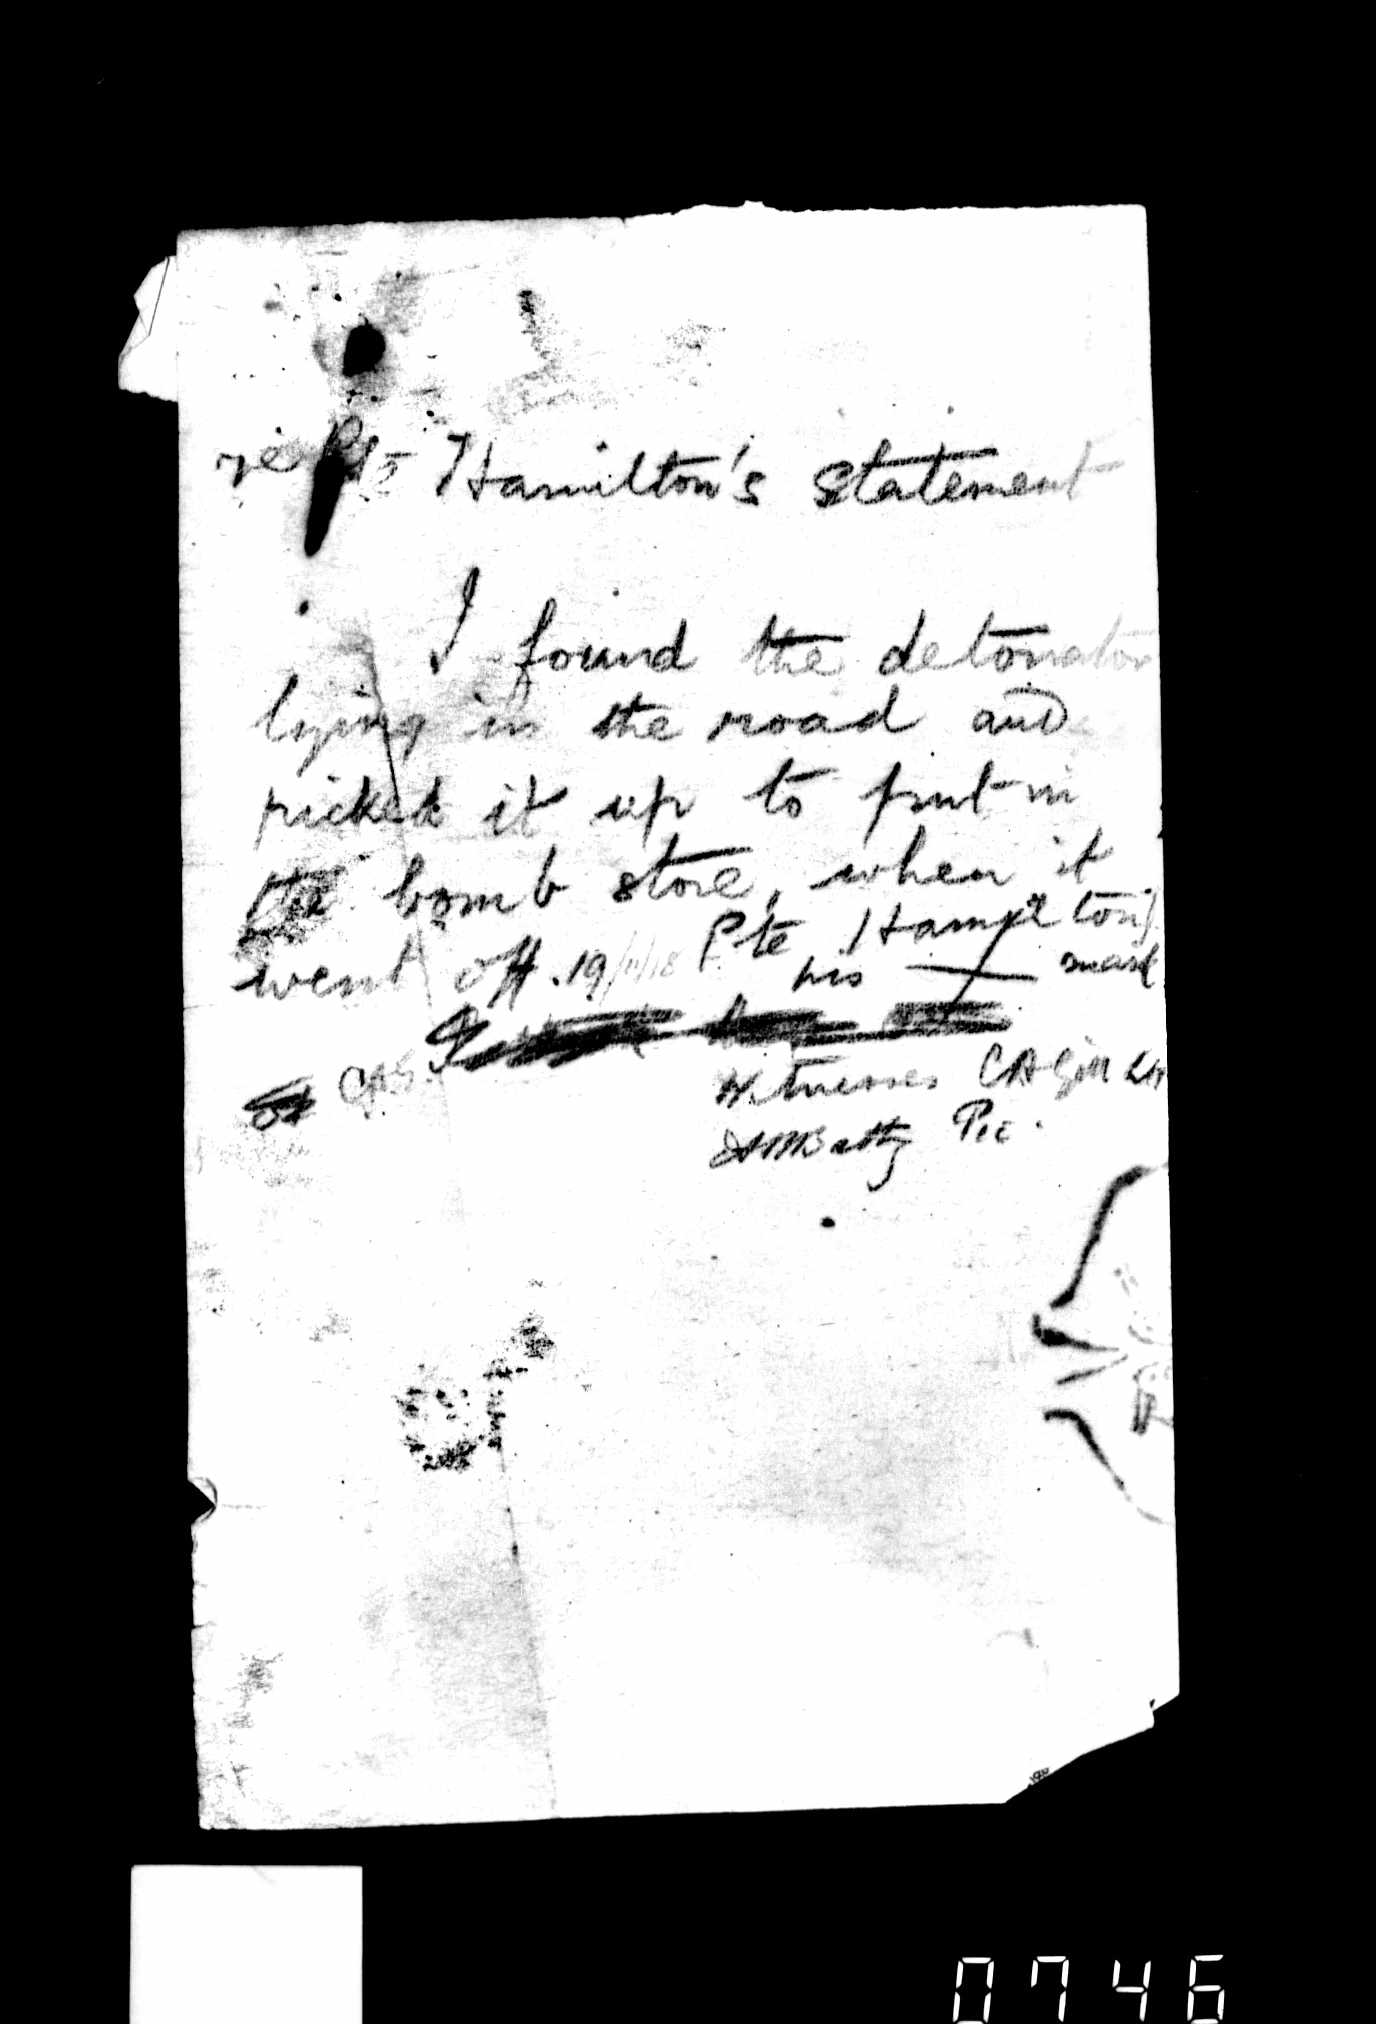 re Pte Hamilton's statement
I found the detonator
lying in the road and
picked it up to put in
the bomb store, when it
went off. 19/11/18 Pte Hamilton's
his X mark
CAG.
Witnesses CAGill
Batty Pte.
0746